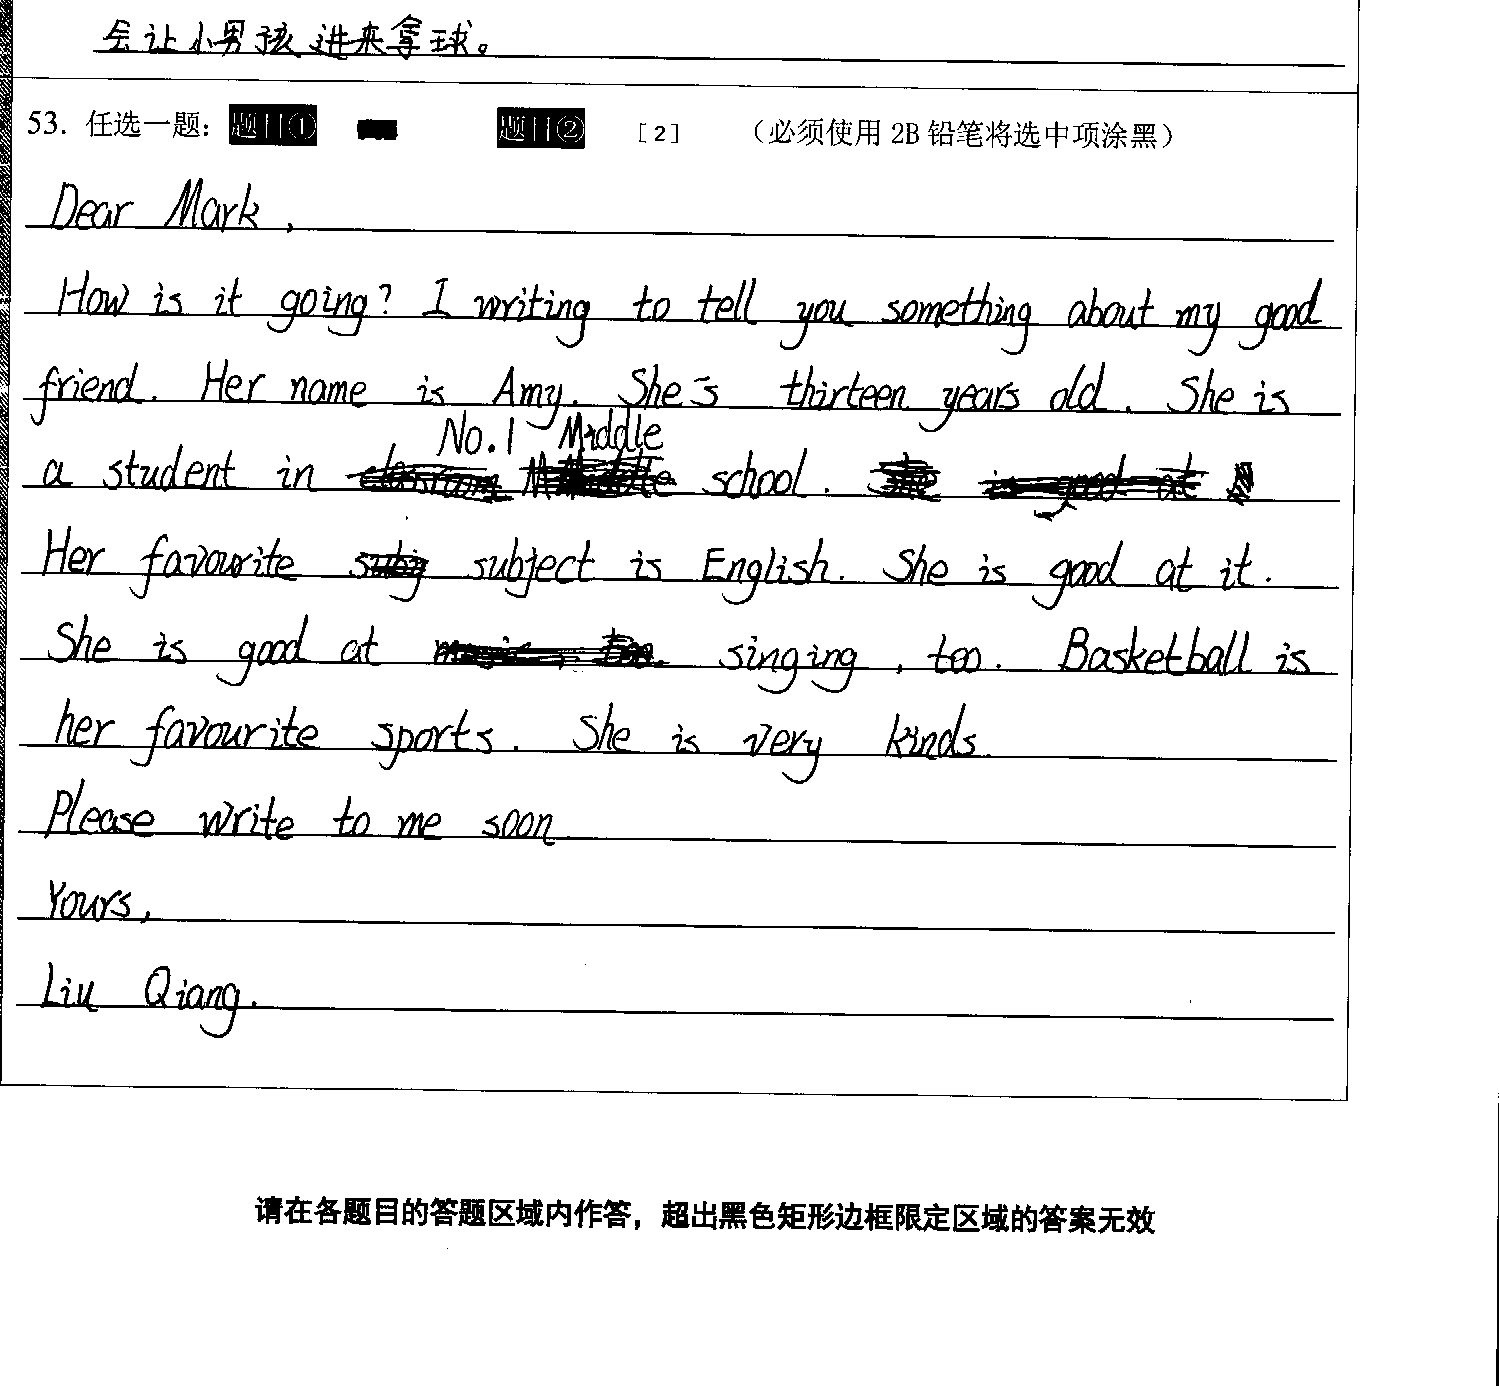 会让小男孩进来拿球。
53. 任选一题: 题目① 题目② [2] （必须使用 2B 铅笔将选中项涂黑）
Dear Mark,
How is it going? I writing to tell you something about my good
friend. Her name is Amy. She's thirteen years old. She is
No.1 Middle
a student in school.
Her favourite subject is English. She is good at it.
She is good at singing, too. Basketball is
her favourite sports. She is very kinds.
Please write to me soon
Yours,
Liu Qiang.
请在各题目的答题区域内作答，超出黑色矩形边框限定区域的答案无效